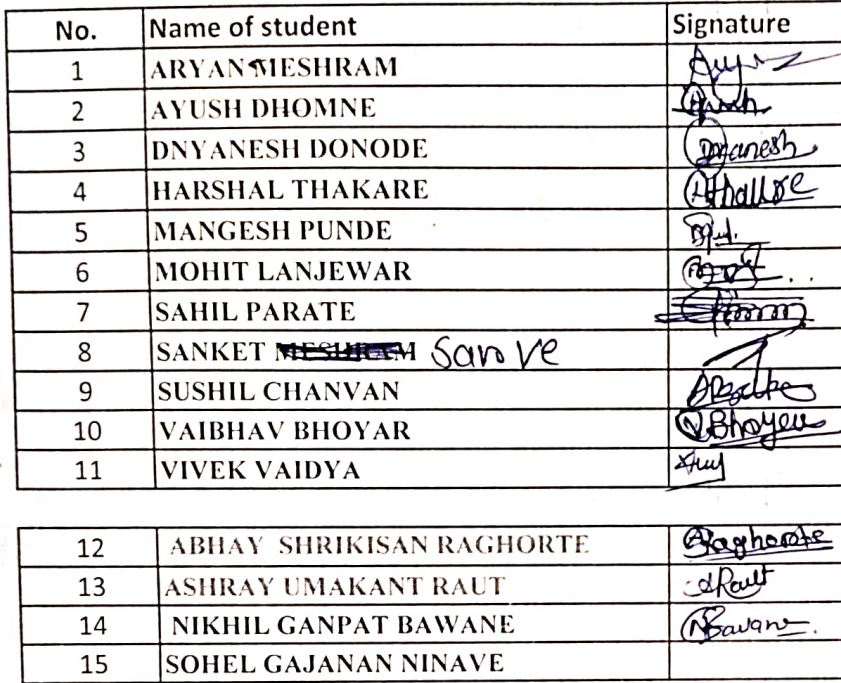 No. Name of student Signature
1 ARYAN MESHRAM
2 AYUSH DHOMNE
3 DNYANESH DONODE Dnyanesh
4 HARSHAL THAKARE
5 MANGESH PUNDE
6 MOHIT LANJEWAR
7 SAHIL PARATE
8 SANKET MESHRAM Sarve
9 SUSHIL CHANVAN
10 VAIBHAV BHOYAR
11 VIVEK VAIDYA
12 ABHAY SHRIKISAN RAGHORTE Raghorte
13 ASHRAY UMAKANT RAUT ARaut
14 NIKHIL GANPAT BAWANE NBawane.
15 SOHEL GAJANAN NINAVE